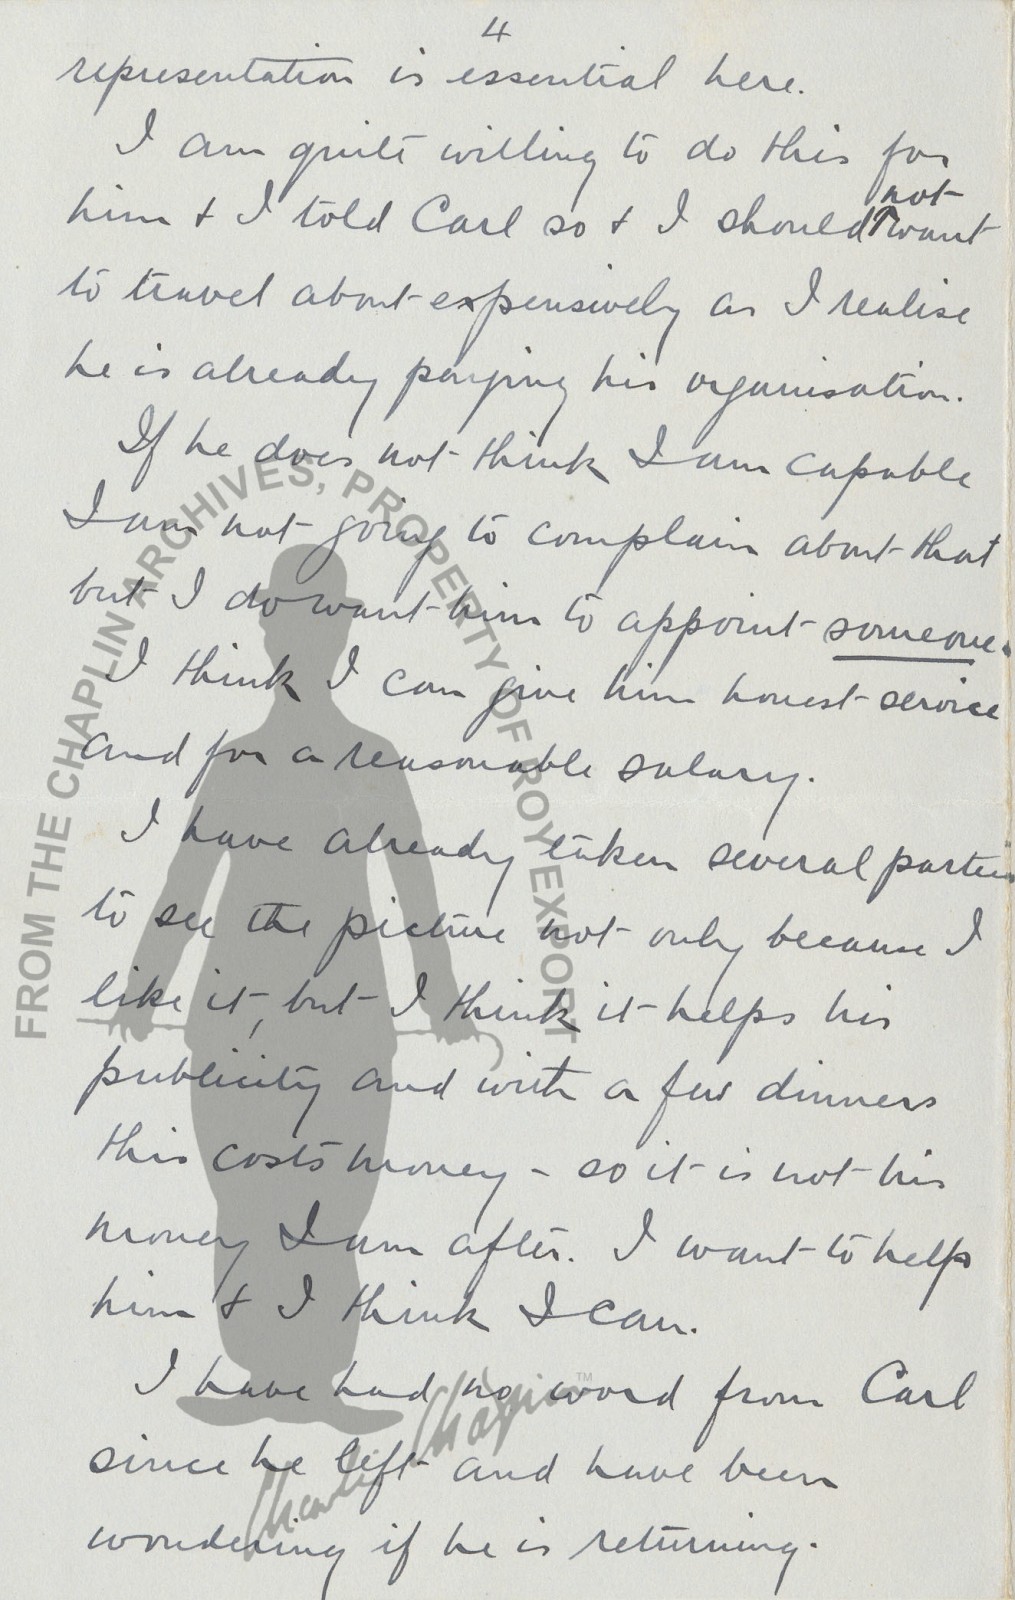 4
representation is essential here.
I am quite willing to do this for
him & I told Carl so & I should not want
to travel about expensively as I realise
he is already paying his organisation.
If he does not think I am capable
I am not going to complain about that
but I do want him to appoint someone.
I think I can give him honest service
and for a reasonable salary.
I have already taken several parties
to see the picture not only because I
like it, but I think it helps his
publicity and with a few dinners
this costs money - so it is not his
money I am after. I want to help
him & I think I can.
I have had no word from Carl
since he left and have been
wondering if he is returning.
FROM THE CHAPLIN ARCHIVES, PROPERTY OF ROY EXPORT
Charlie Chaplin TM